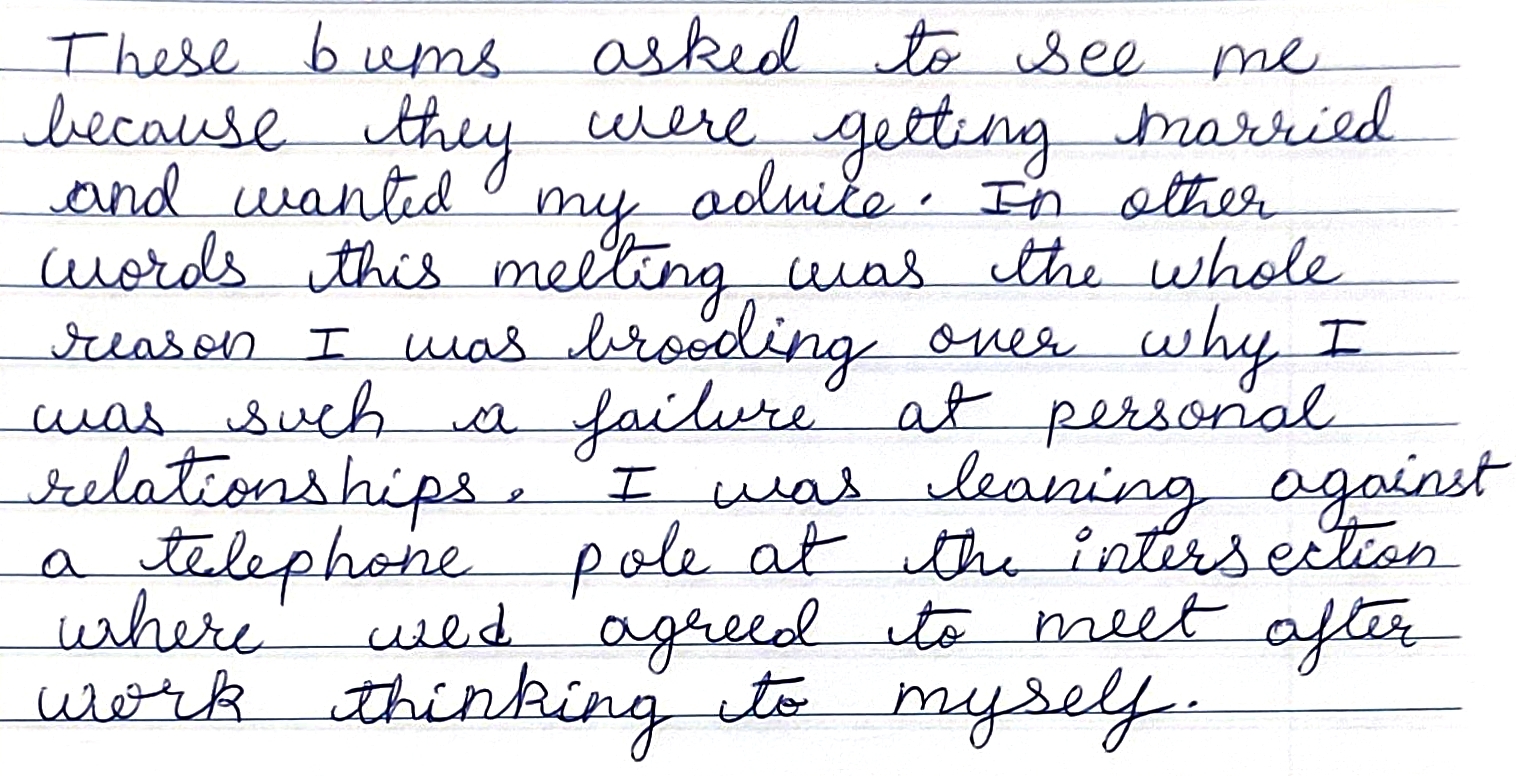 These bums asked to see me
because they were getting married
and wanted my advice. In other
words this meeting was the whole
reason I was brooding over why I
was such a failure at personal
relationships. I was leaning against
a telephone pole at the intersection
where wed agreed to meet after
work thinking to myself.